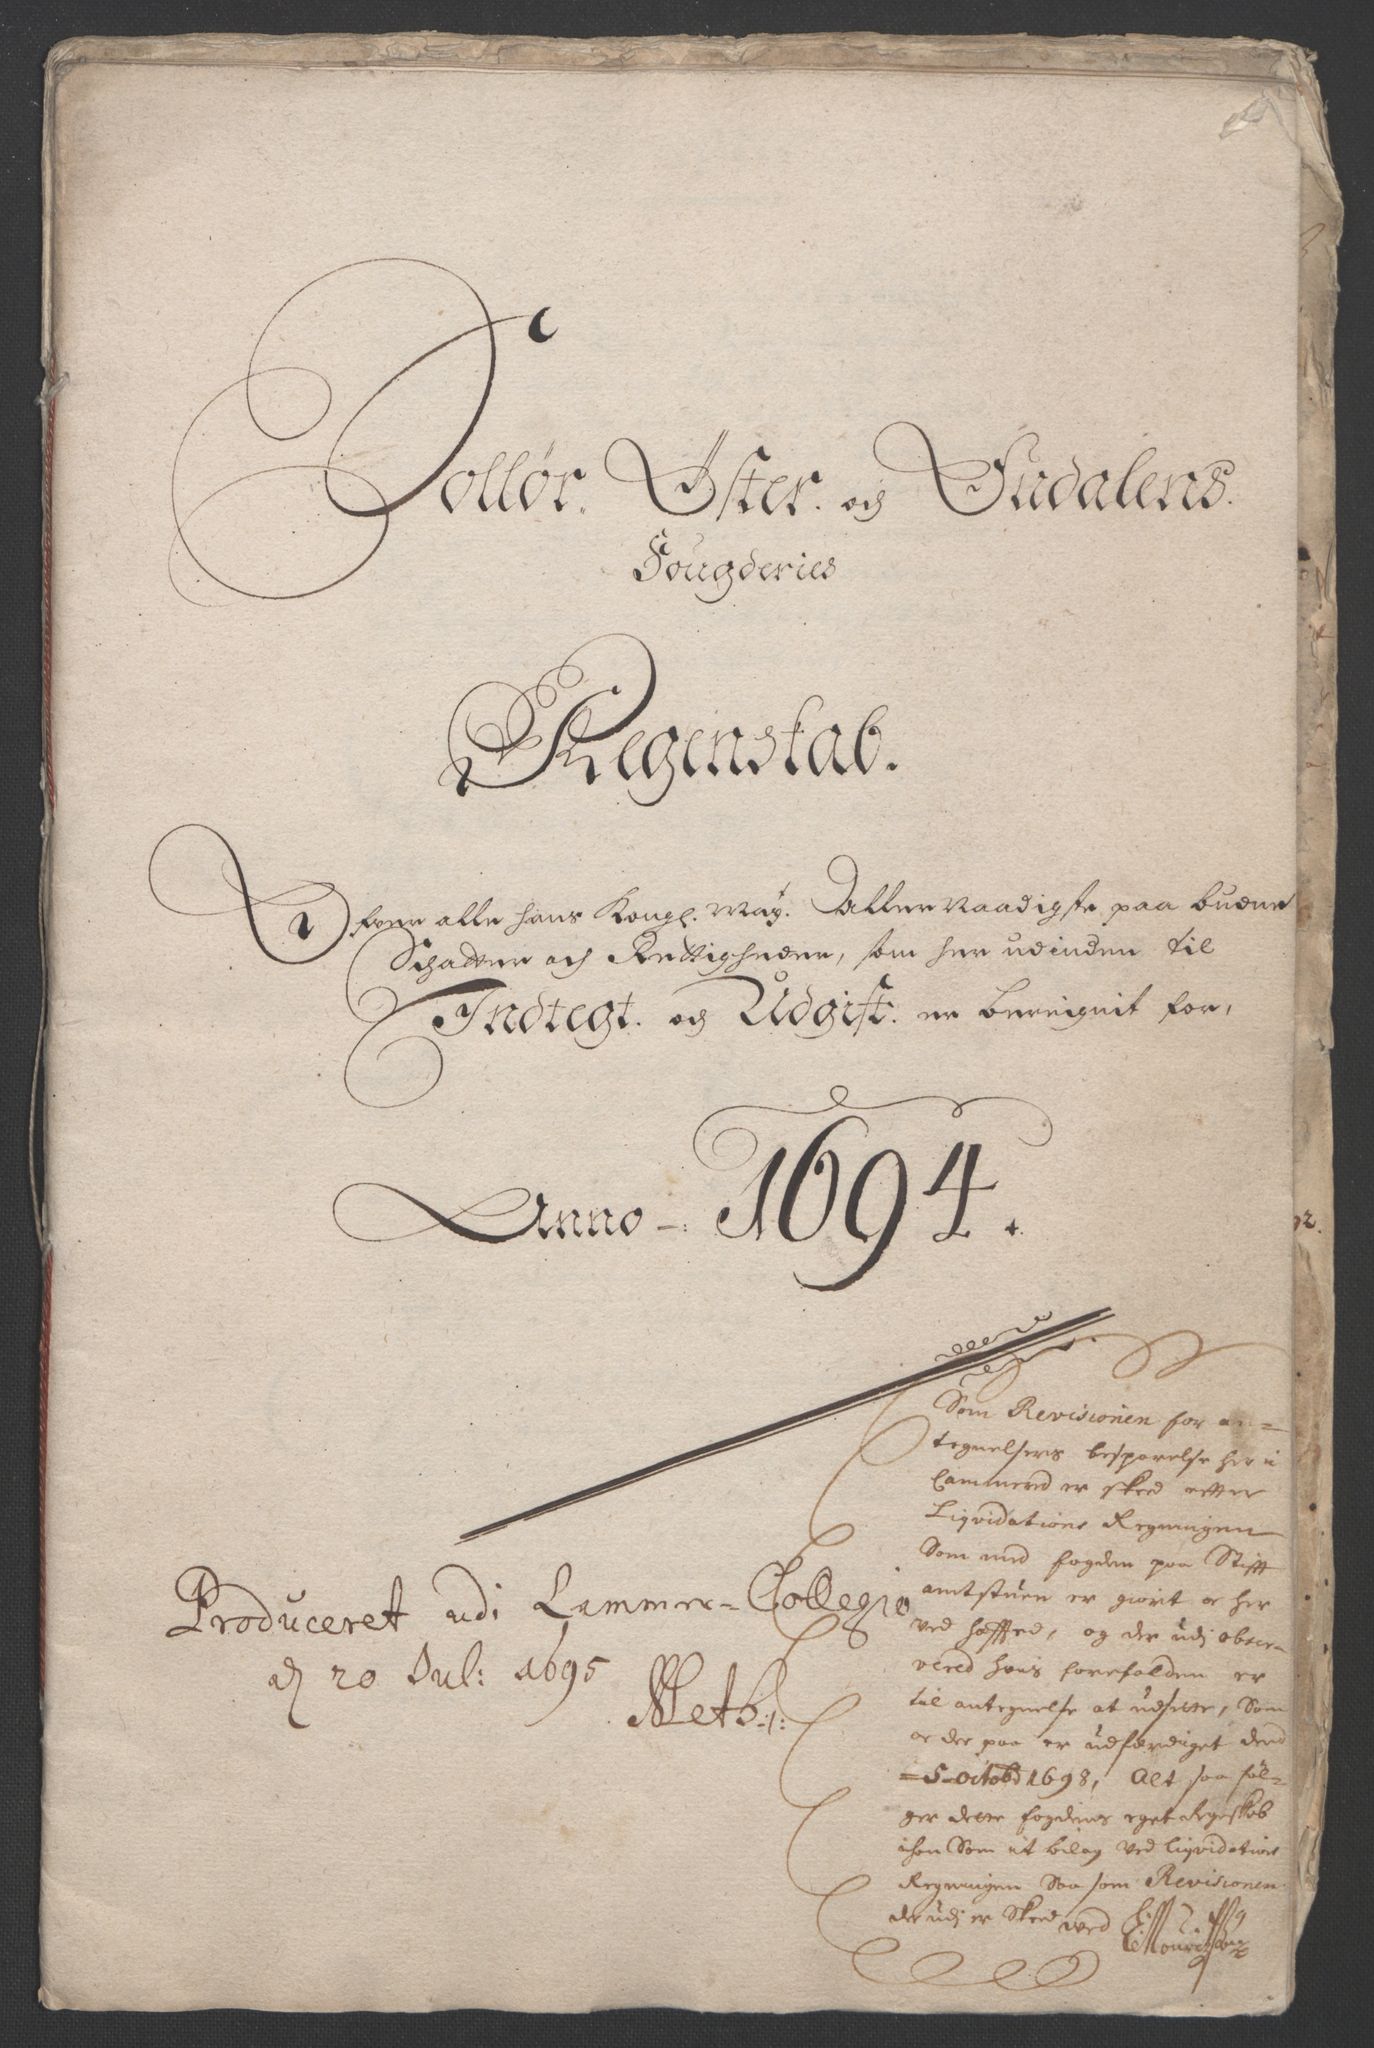 Sollør. Øster. och Ørtdalens.
Fougderies
Regenskab.
Ofver alle hans Kongl. May. Allernaadigste paa budene
Schatter och Rettigheder, som her udinden til
Indtegt. och Udgift. er bereignit for,
Anno 1694.
Produceret udi Cammer-Collegio
d 20 Jul: 1695
Meth
Som Revisionen for an=
tegnelsers besparelse her i
Cammered er skeed efter
Liqvidations Regningen
Som med fogden paa Stifft
amtstuen er giort oc her
ved hæfted, og der udj obser=
vered hvis forefalden er
til antegnelse at udsette, Som
oc der paa er udferdiget dend
5 Octobr 1698, Alt saa føl=
ger dette fogdens eget Regnskab
ichon Som it bilag ved liqvidations
Regningen Saa som Revisionen
der udj er Skeed ved